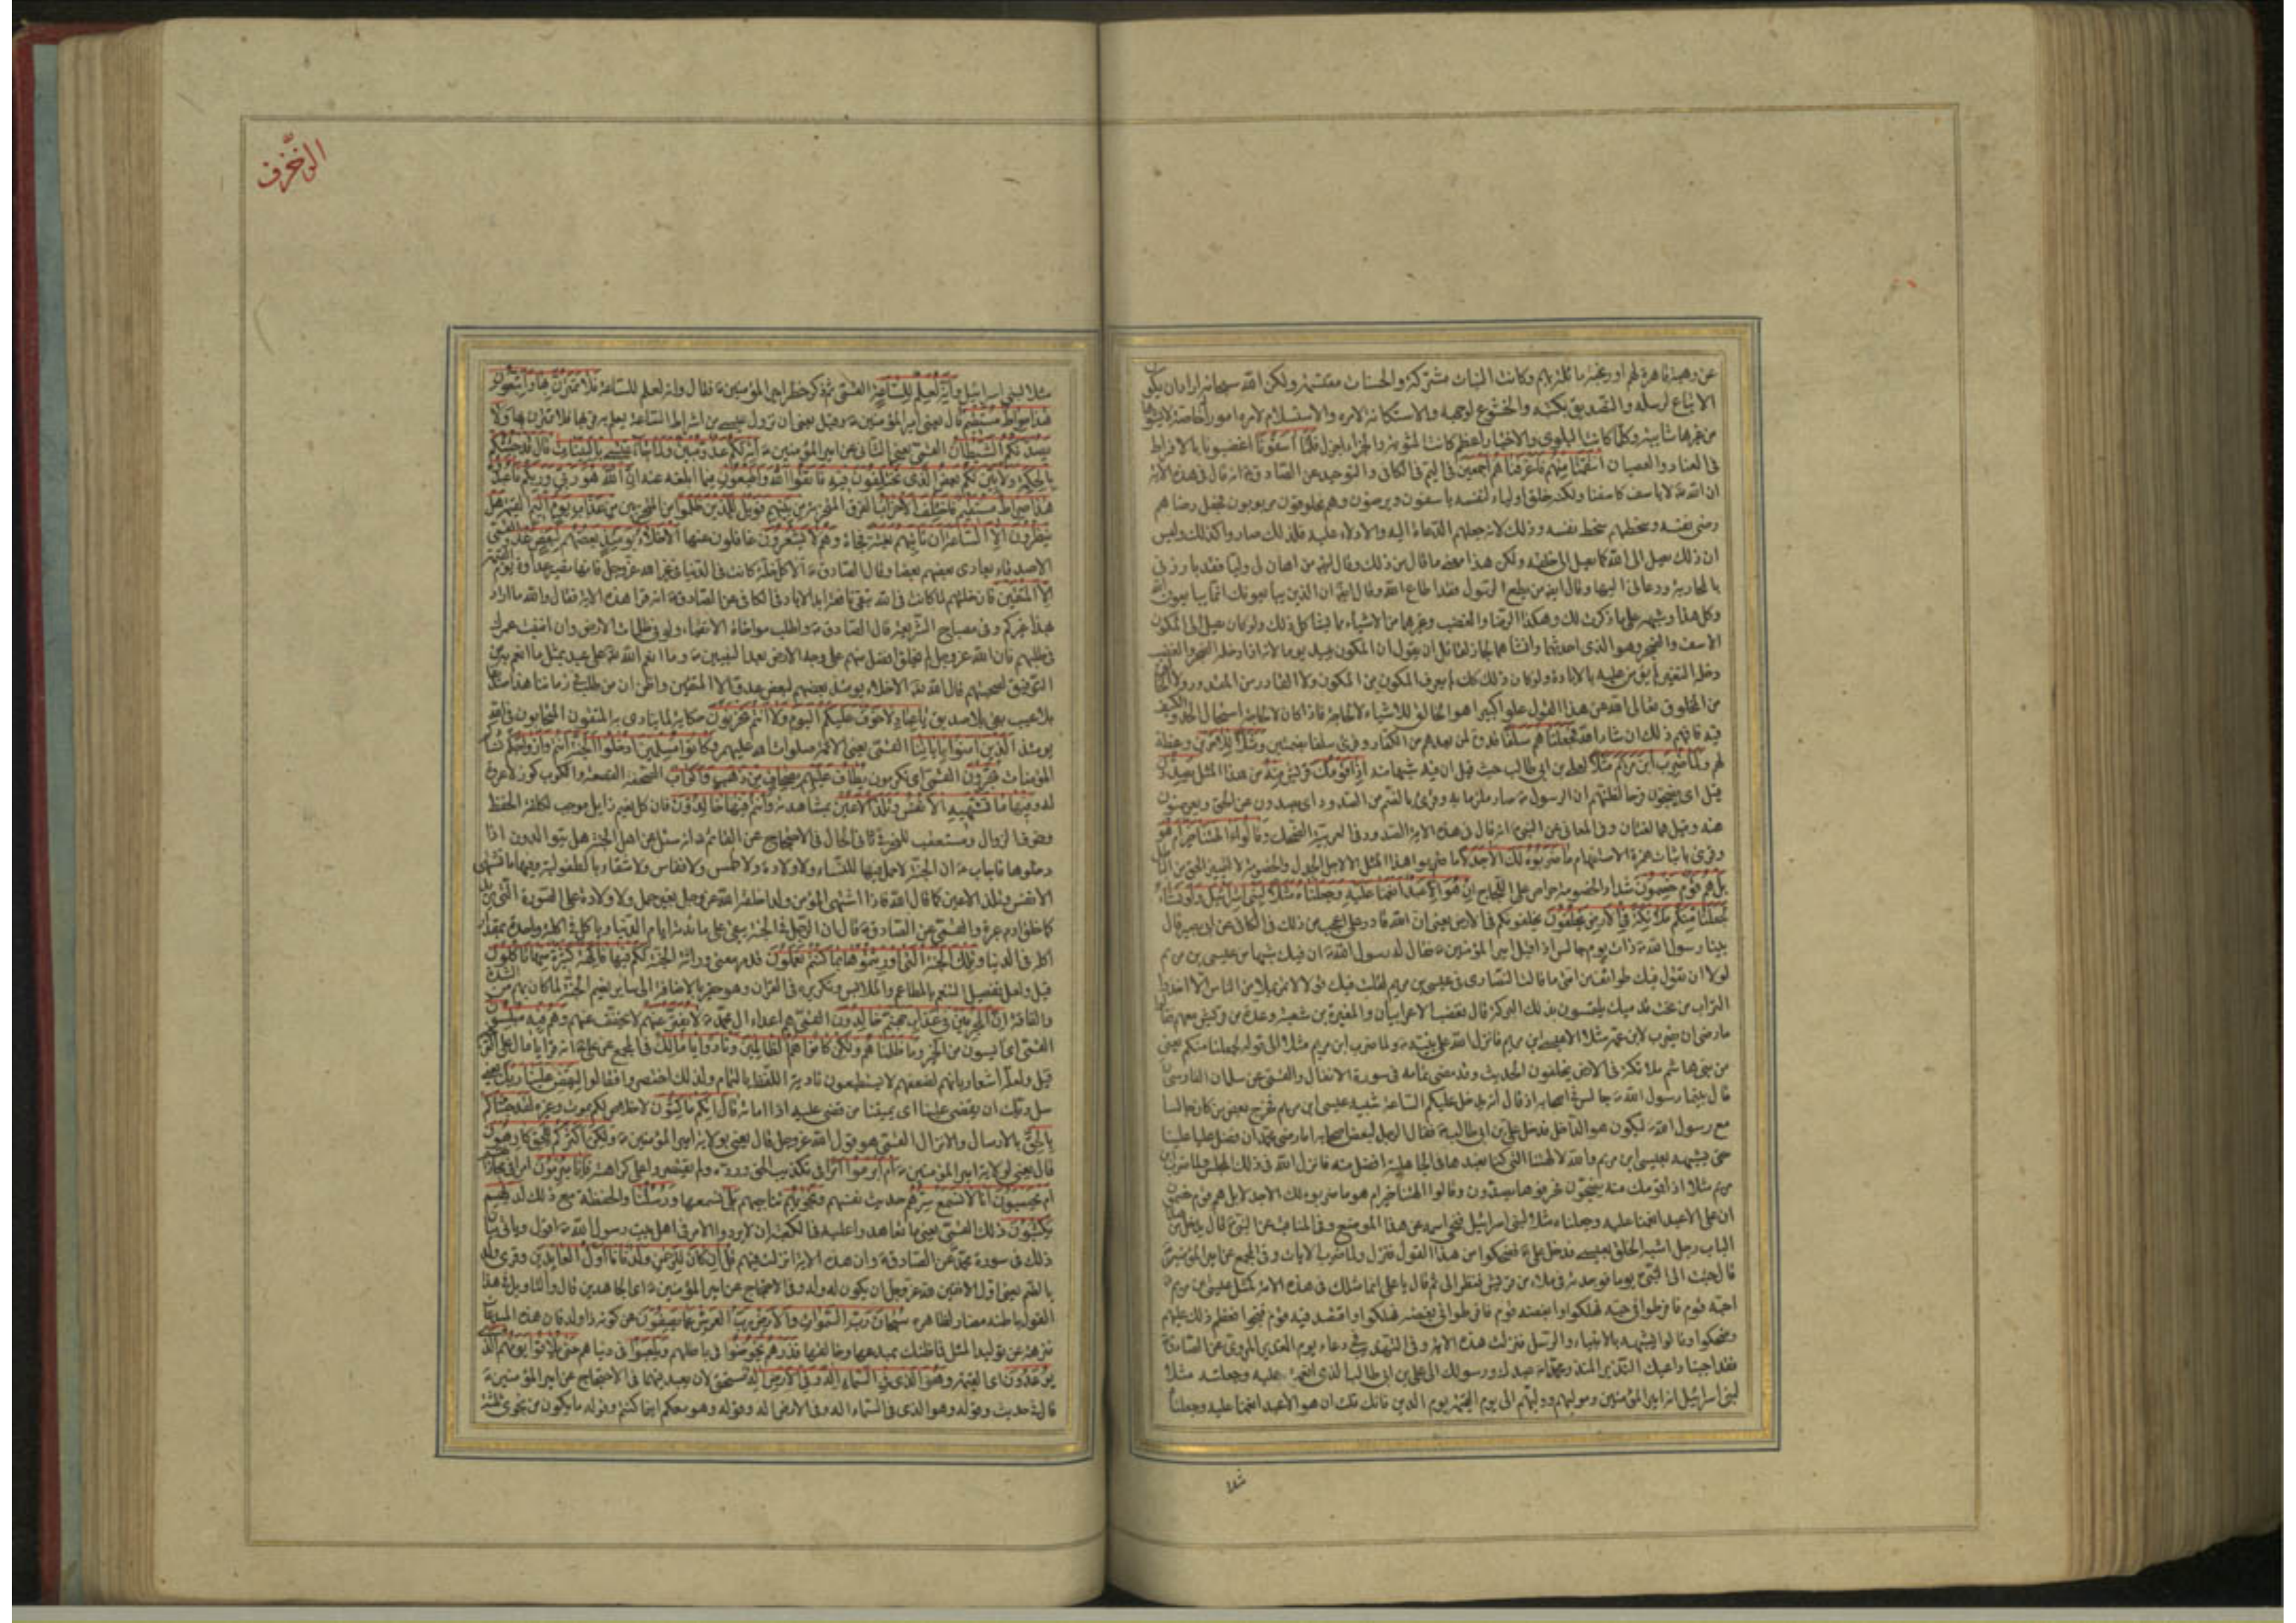 عن رهبة قاهرة لهم او رغبة مائلة بهم وكانت النيات مشتركة والحسنات مقتسمة ولكن الله سبحانه اراد ان يكون
الاتباع لرسله والتصديق بكتبه والخشوع لوجهه والاستكانة لامره والاستسلام لامره امورا خاصة لا يشوبها
من غيرها شائبة وكلما كانت البلوى والاختبار اعظم كانت المثوبة والجزاء اجزل فلما آسفونا اغضبونا بالافراط
في العناد والعصيان انتقمنا منهم فاغرقناهم اجمعين في اليم في الكافي والتوحيد عن الصادق انه قال في هذه الآية
ان الله لا ياسف كاسفنا ولكنه خلق اولياء لنفسه ياسفون ويرضون وهم مخلوقون مربوبون فجعل رضاهم
رضى نفسه وسخطهم سخط نفسه وذلك لانه جعلهم الدعاة اليه والادلاء عليه فلذلك صاروا كذلك وليس
ان ذلك يصل الى الله كما يصل الى خلقه ولكن هذا معنى ما قال من ذلك وقال ايضا من اهان لي وليا فقد بارزني
بالمحاربة ودعاني اليها وقال ايضا من يطع الرسول فقد اطاع الله وقال ايضا ان الذين يبايعونك انما يبايعون الله
وكل هذا وشبهه على ما ذكرت لك وهكذا الرضا والغضب وغيرهما من الاشياء مما يشاكل ذلك ولو كان يصل الى المكون
الاسف والضجر وهو الذي احدثهما وانشأهما لجاز لقائل ان يقول ان المكون يبيد يوما لانه اذا دخله الضجر والغضب
دخله التغيير لم يؤمن عليه بالابادة ولو كان ذلك كذلك لم يعرف المكون من المكون ولا القادر من المقدور ولا الخالق
من المخلوق تعالى الله عن هذا القول علوا كبيرا هو الخالق للاشياء لا لحاجة فاذا كان لا لحاجة استحال الحد والكيف
فيه فافهم ذلك ان شاء الله فجعلناهم سلفا قدوة لمن بعدهم من الكفار وقرئ سلفا بضمتين ومثلا للآخرين وعظة
لهم ولما ضرب ابن مريم مثلا
هند وقيل هما لغتان وفي المعاني عن النبي انه قال في هذه الآية الصدود في العربية الضحك وقالوا ءالهتنا خير ام هو
وقرئ باثبات همزة الاستفهام ما ضربوه لك الا جدلا ما ضربوا هذا المثل الا لاجل الجدل والخصومة لا لتمييز الحق من الباطل
بل هم قوم خصمون شداد الخصومة حراص على اللجاج ان هو الا عبد انعمنا عليه وجعلناه مثلا لبني اسرائيل ولو نشاء
لجعلنا منكم ملائكة في الارض يخلفون يخلفونكم في الارض يعني ان الله قادر على اعجب من ذلك في الكافي عن ابي بصير قال
بينا رسول الله ذات يوم جالس اذ اقبل امير المؤمنين فقال له رسول الله ان فيك شبها من عيسى بن مريم
لولا ان تقول فيك طوائف من امتي ما قالت النصارى في عيسى بن مريم لقلت فيك قولا لا تمر بملا من الناس الا اخذوا
التراب من تحت قدميك يلتمسون بذلك البركة قال فغضب الاعرابيان والمغيرة بن شعبة وعدة من قريش معهم فقالوا
ما رضى ان يضرب لابن عمه مثلا الا عيسى ابن مريم فانزل الله على نبيه ولما ضرب ابن مريم مثلا الى قوله لجعلنا منكم يعني
من بني هاشم ملائكة في الارض يخلفون الحديث وقد مضى تمامه في سورة الانفال والقمي عن سلمان الفارسي
قال بينما رسول الله جالس في اصحابه اذ قال انه يدخل عليكم الساعة شبيه عيسى ابن مريم فخرج بعض من كان جالسا
مع رسول الله ليكون هو الداخل فدخل علي بن ابي طالب فقال الرجل لبعض اصحابه اما رضى محمد ان فضل عليا علينا
حتى يشبهه بعيسى ابن مريم والله لالهتنا التي كنا نعبدها في الجاهلية افضل منه فانزل الله في ذلك المجلس ولما ضرب ابن
مريم مثلا اذا قومك منه يضجون فحرفوها يصدون وقالوا ءالهتنا خير ام هو ما ضربوه لك الا جدلا بل هم قوم خصمون
ان علي الا عبد انعمنا عليه وجعلناه مثلا لبني اسرائيل فمحي اسمه عن هذا الموضع
قال جئت الى النبي يوما فوجدته في ملاء من قريش فنظر الي ثم قال يا علي انما مثلك في هذه الامة كمثل عيسى ابن مريم
احبه قوم فافرطوا في حبه فهلكوا وابغضه قوم فافرطوا في بغضه فهلكوا واقتصد فيه قوم فنجوا فعظم ذلك عليهم
وضحكوا وقالوا يشبهه بالانبياء والرسل فنزلت هذه الآية وفي التهذيب في دعاء يوم الغدير المروي عن الصادق
فقد اجبنا داعيك النذير المنذر محمدا عبدك ورسولك الى علي بن ابي طالب الذي انعمت عليه وجعلته مثلا
لبني اسرائيل انه امير المؤمنين ومولاهم ووليهم الى يوم القيمة يوم الدين فانك قلت ان هو الا عبد انعمنا عليه وجعلناه
مثلا
الزّخرف
مثلا لبني اسرائيل وانه لعلم للساعة القمي ثم ذكر خطر امير المؤمنين فقال وانه لعلم للساعة فلا تمترن بها واتبعون
هذا صراط مستقيم قال يعني امير المؤمنين وقيل يعني ان نزول عيسى من اشراط الساعة يعلم به قربها فلا تمترن بها ولا
يصدنكم الشيطان القمي يعني الثاني عن امير المؤمنين انه لكم عدو مبين ولما جاء عيسى بالبينات قال قد جئتكم
بالحكمة ولابين لكم بعض الذي تختلفون فيه فاتقوا الله واطيعون فيما ابلغه عنه ان الله هو ربي وربكم فاعبدوه
هذا صراط مستقيم فاختلف الاحزاب الفرق المتحزبة من بينهم فويل للذين ظلموا من المتحزبين من عذاب يوم اليم القيمة هل
ينظرون الا الساعة ان تاتيهم بغتة فجاءة وهم لا يشعرون غافلون عنها الاخلاء يومئذ بعضهم لبعض عدو القمي
الاصدقاء يعادي بعضهم بعضا وقال الصادق الا كل خلة كانت في الدنيا في غير الله عز وجل فانها تصير عداوة يوم القيمة
الا المتقين فان خلتهم لما كانت في الله تبقى نافعة ابد الاباد في الكافي عن الصادق انه قرأ هذه الآية فقال والله ما اراد
بهذا غيركم وفي مصباح الشريعة قال الصادق واطلب مواخاة الاتقياء ولو في ظلمات الارض وان افنيت عمرك
في طلبهم فان الله عز وجل لم يخلق افضل منهم على وجه الارض بعد النبيين وما انعم الله على عبد بمثل ما انعم به من
التوفيق لصحبتهم قال الله الاخلاء يومئذ بعضهم لبعض عدو الا المتقين واظن ان من طلب في زماننا هذا صديقا
بلا عيب بقي بلا صديق يا عباد لا خوف عليكم اليوم ولا انتم تحزنون حكاية لما ينادى به المتقون المتحابون في الله
يومئذ الذين امنوا باياتنا القمي يعني الائمة صلوات الله عليهم وكانوا مسلمين ادخلوا الجنة انتم وازواجكم نساؤكم
المؤمنات تحبرون القمي اي تكرمون يطاف عليهم بصحاف من ذهب واكواب الصحفة القصعة والكوب كوز لا عروة
له وفيها ما تشتهيه الانفس وتلذ الاعين بمشاهدته وانتم فيها خالدون فان كل نعيم زايل موجب لكلفة الحفظ
وخوف الزوال ومستعقب للتحسر في ثاني الحال في الاحتجاج عن القائم انه سئل عن اهل الجنة هل يتوالدون اذا
دخلوها فاجاب ان الجنة لا حمل فيها للنساء ولا ولادة ولا طمث ولا نفاس ولا شقاء بالطفولية وفيها ما تشتهي
الانفس وتلذ الاعين كما قال الله فاذا اشتهى المؤمن ولدا خلقه الله عز وجل بغير حمل ولا ولادة على الصورة التي يريد
كما خلق ادم عبرة والقمي عن الصادق قال ان الرجل في الجنة يبقى على مائدته ايام الدنيا وياكل في اكلة واحدة بمقدار
اكله في الدنيا وتلك الجنة التي اورثتموها بما كنتم تعملون قد مر معنى وراثة الجنة لكم فيها فاكهة كثيرة منها تاكلون
قيل ولعل تفصيل التنعم بالمطاعم والملابس وتكريره في القرآن وهو حقير بالاضافة الى ساير نعيم الجنة لما كان بهم من الشدة
والفاقة ان المجرمين في عذاب جهنم خالدون القمي هم اعداء ال محمد لا يفتر عنهم لا يخفف عنهم وهم فيه مبلسون
القمي اي آيسون من الخير وما ظلمناهم ولكن كانوا هم الظالمين ونادوا يا مالك
قيل ولعله اشعار بانهم لضعفهم لا يستطيعون تادية اللفظ بالتمام ولذلك اختصروا فقالوا ليقض علينا ربك يعني
سل ربك ان يقضي علينا اي يميتنا من قضى عليه اذا اماته قال انكم ماكثون لا خلاص لكم بموت وغيره لقد جئناكم
بالحق بالارسال والانزال القمي هو قول الله عز وجل قال يعني بولاية امير المؤمنين ولكن اكثركم للحق كارهون
قال يعني لولاية امير المؤمنين ام ابرموا امرا في تكذيب الحق ورده ولم يقتصروا على كراهته فانا مبرمون امرا في مجازاتهم
ام يحسبون انا لا نسمع سرهم حديث نفسهم ونجويهم تناجيهم بلى نسمعها ورسلنا والحفظة مع ذلك لديهم
يكتبون ذلك القمي يعني ما تعاهدوا عليه في الكعبة ان لا يردوا الامر في اهل بيت رسول الله اقول وياتي بيان
ذلك في سورة محمد عن الصادق وان هذه الآية انزلت فيهم قل ان كان للرحمن ولد فانا اول العابدين وقرئ ولد
بالضم يعني اول الآنفين لله عز وجل ان يكون له ولد وفي الاحتجاج عن امير المؤمنين اي الجاحدين قال والتاويل في هذا
القول باطنه مضاد لظاهره سبحان رب السموات والارض رب العرش عما يصفون عن كونه ذا ولد فان هذه المبدعات
منزهة عن توليد المثل فما ظنك بمبدعها وخالقها فذرهم يخوضوا في باطلهم ويلعبوا في دنياهم حتى يلاقوا يومهم الذي
يوعدون اي القيمة وهو الذي في السماء اله وفي الارض اله مستحق لان يعبد فيهما في الاحتجاج عن امير المؤمنين
في حديث وقوله وهو الذي في السماء اله وفي الارض اله وقوله وهو معكم اينما كنتم وقوله ما يكون من نجوى ثلثة